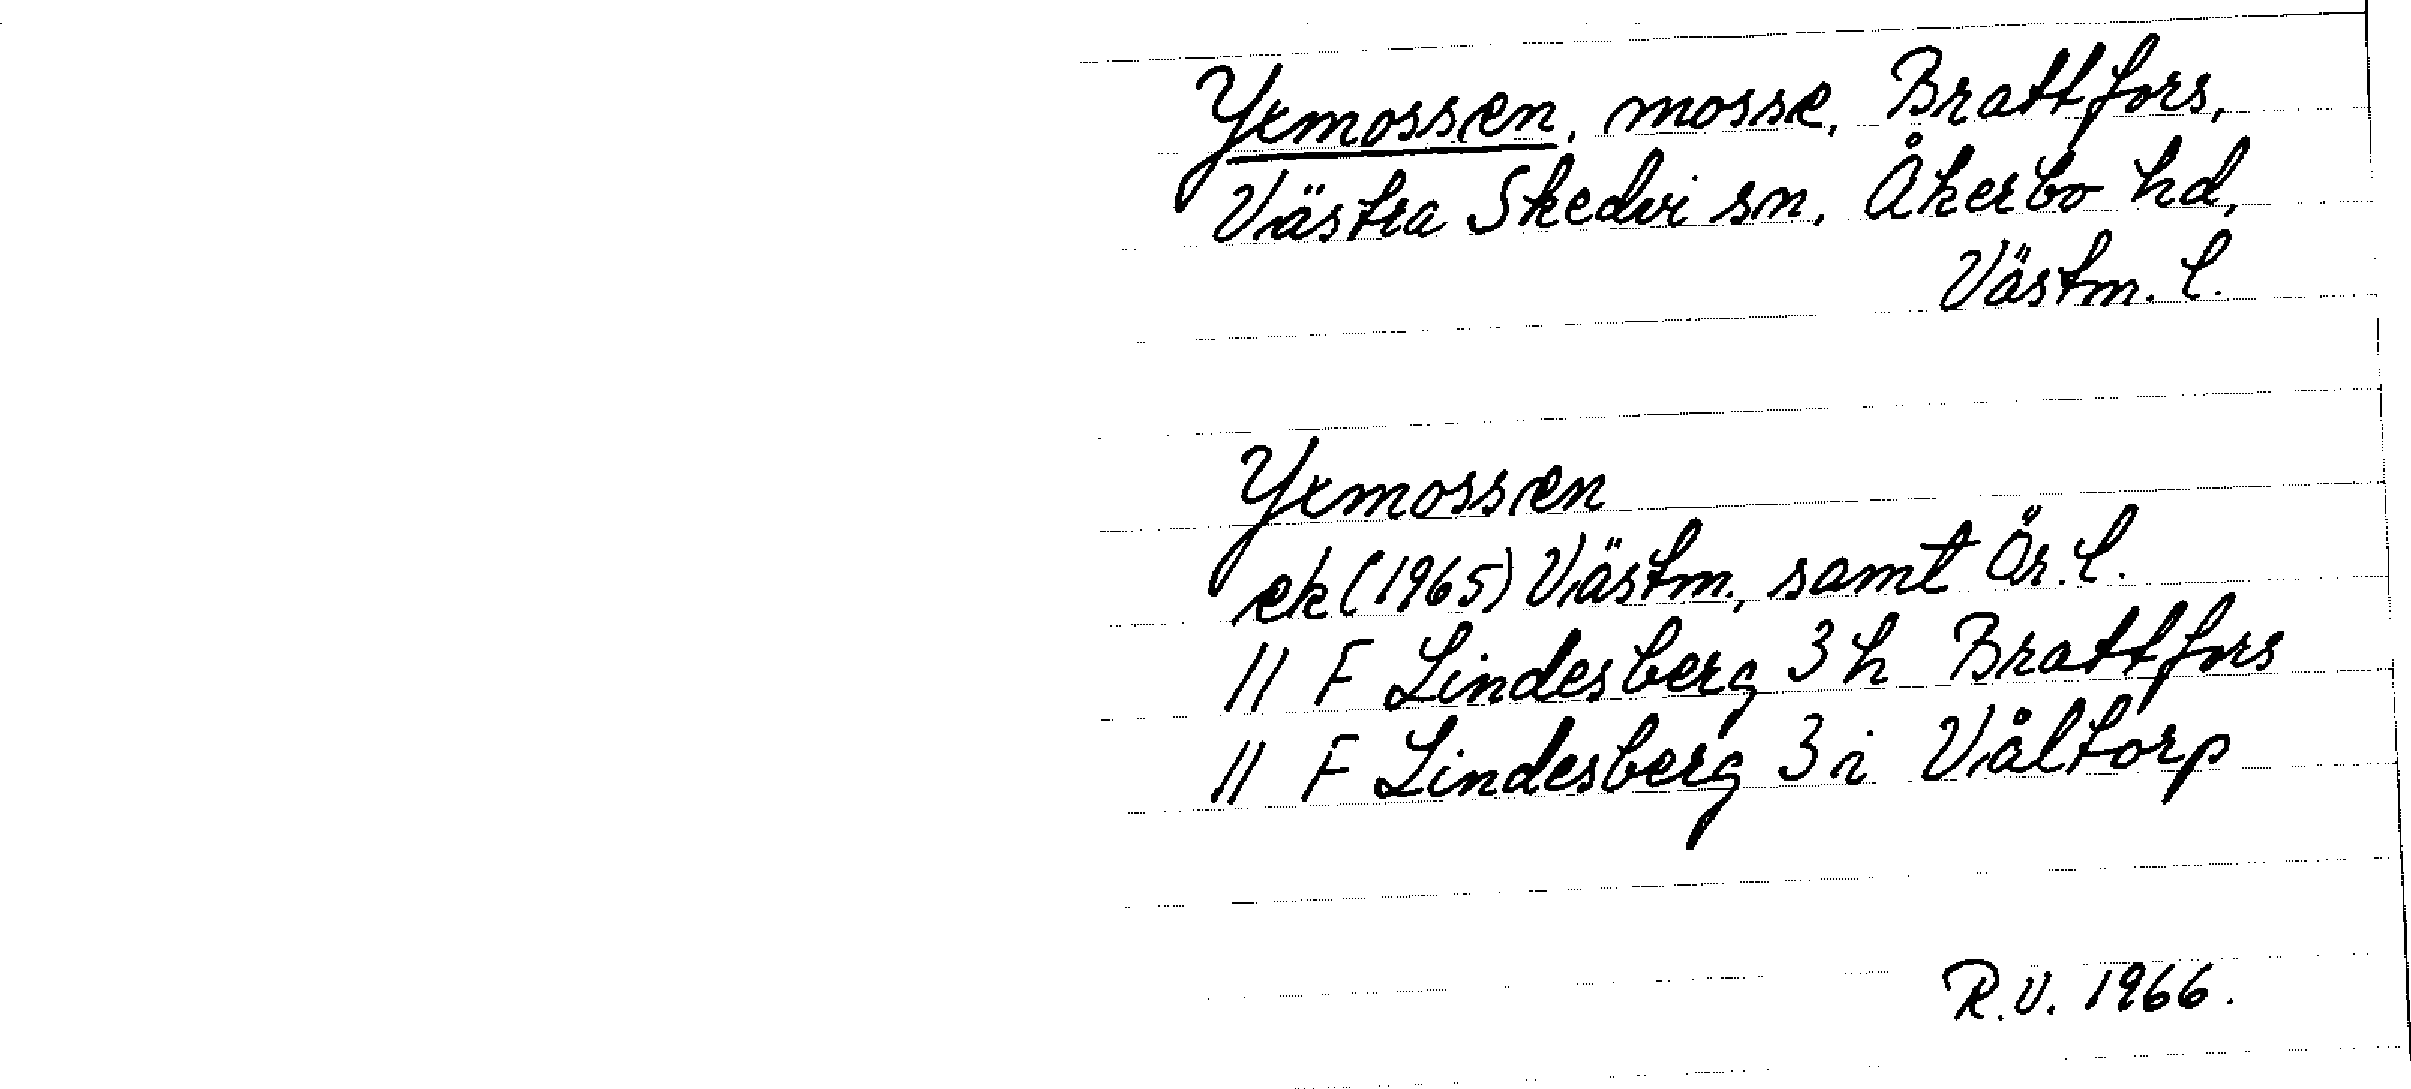 Yxmossen, mosse, Brattfors,
Västra Skedvi sn, Åkerbo hd,
Västm. l.
Yxmossen
ek (1965) Västm., samt Ör. l.
11 F Lindesberg 3 h Brattfors
11 F Lindesberg 3 i Våltorp
R.V. 1966.